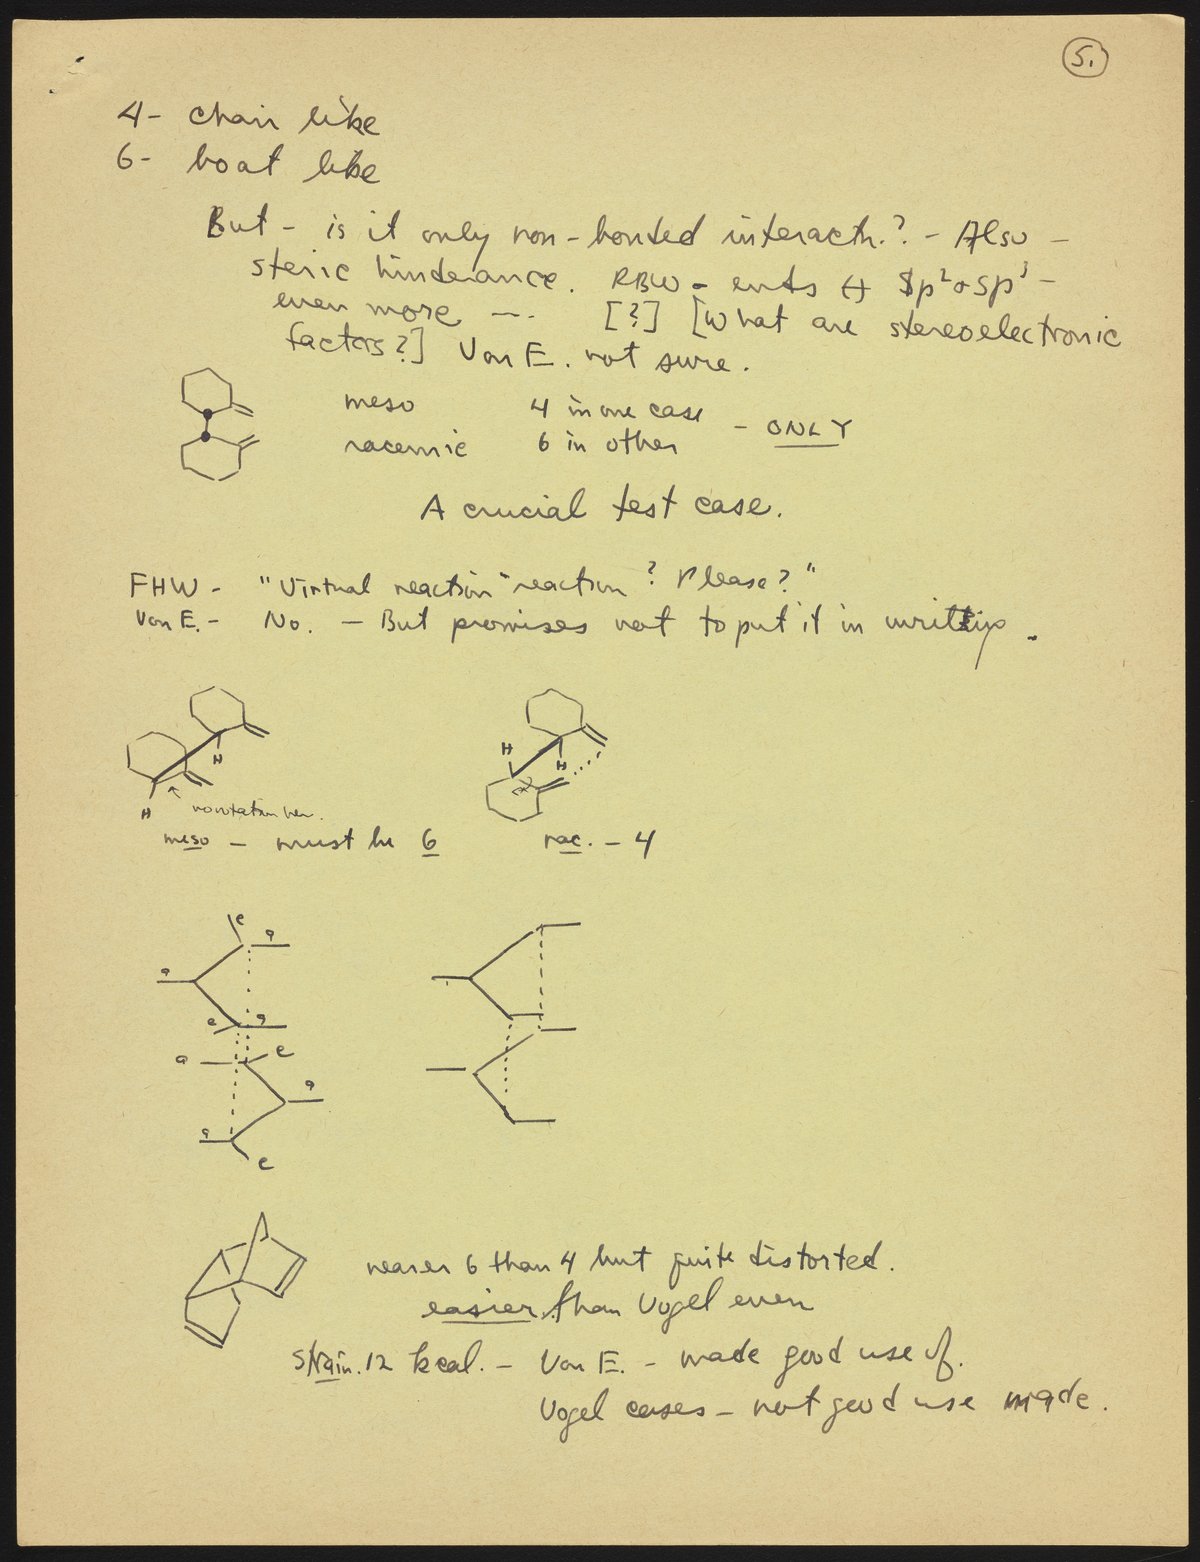 5.
4- chair like
6- boat like
But - is it only non-bonded interactn.? - Also -
steric hinderance. RBW - ents ↔ sp² or sp³ -
even more --- [?] [What are stereoelectronic
factors?] Von E. not sure.
meso 4 in one case
racemic 6 in other - ONLY
A crucial test case.
FHW - "Virtual reaction" reaction? Please?"
Von E. - No. - But promises not to put it in writing.
H
H
H
H
no rotation her.
meso - must be 6
rac. - 4
e
a
a
e a
a e
a
a
e
nearer 6 than 4 but quite distorted.
easier than Vogel even
strain. 12 kcal. - Von E. - made good use of.
Vogel cases - not good use made.